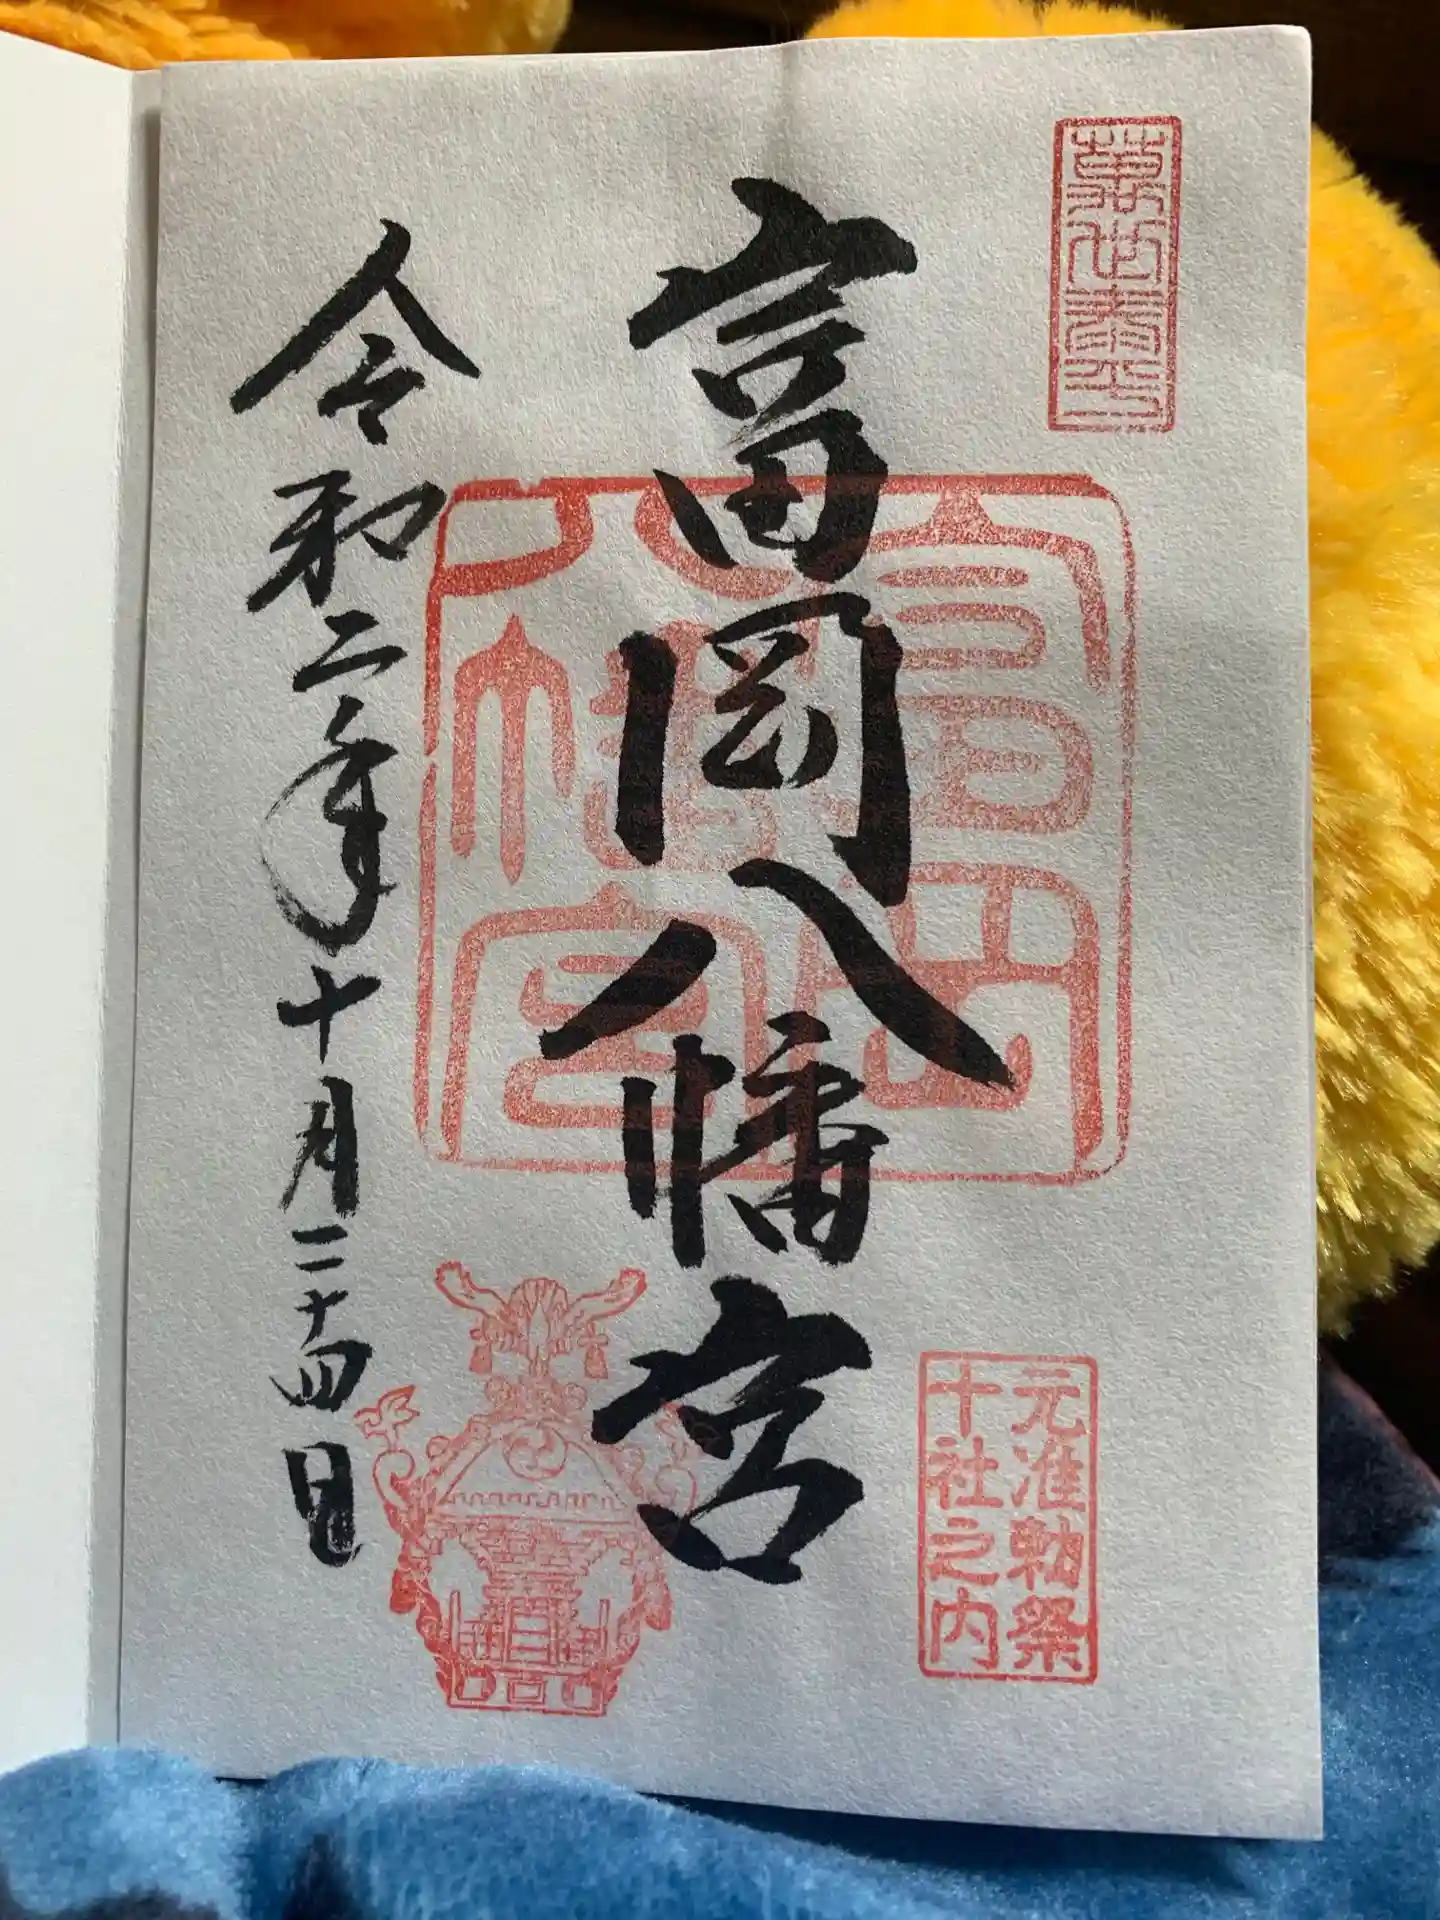 富岡八幡宮
富岡
八幡宮
元准勅祭
十社之内
令和二年十月二十四日